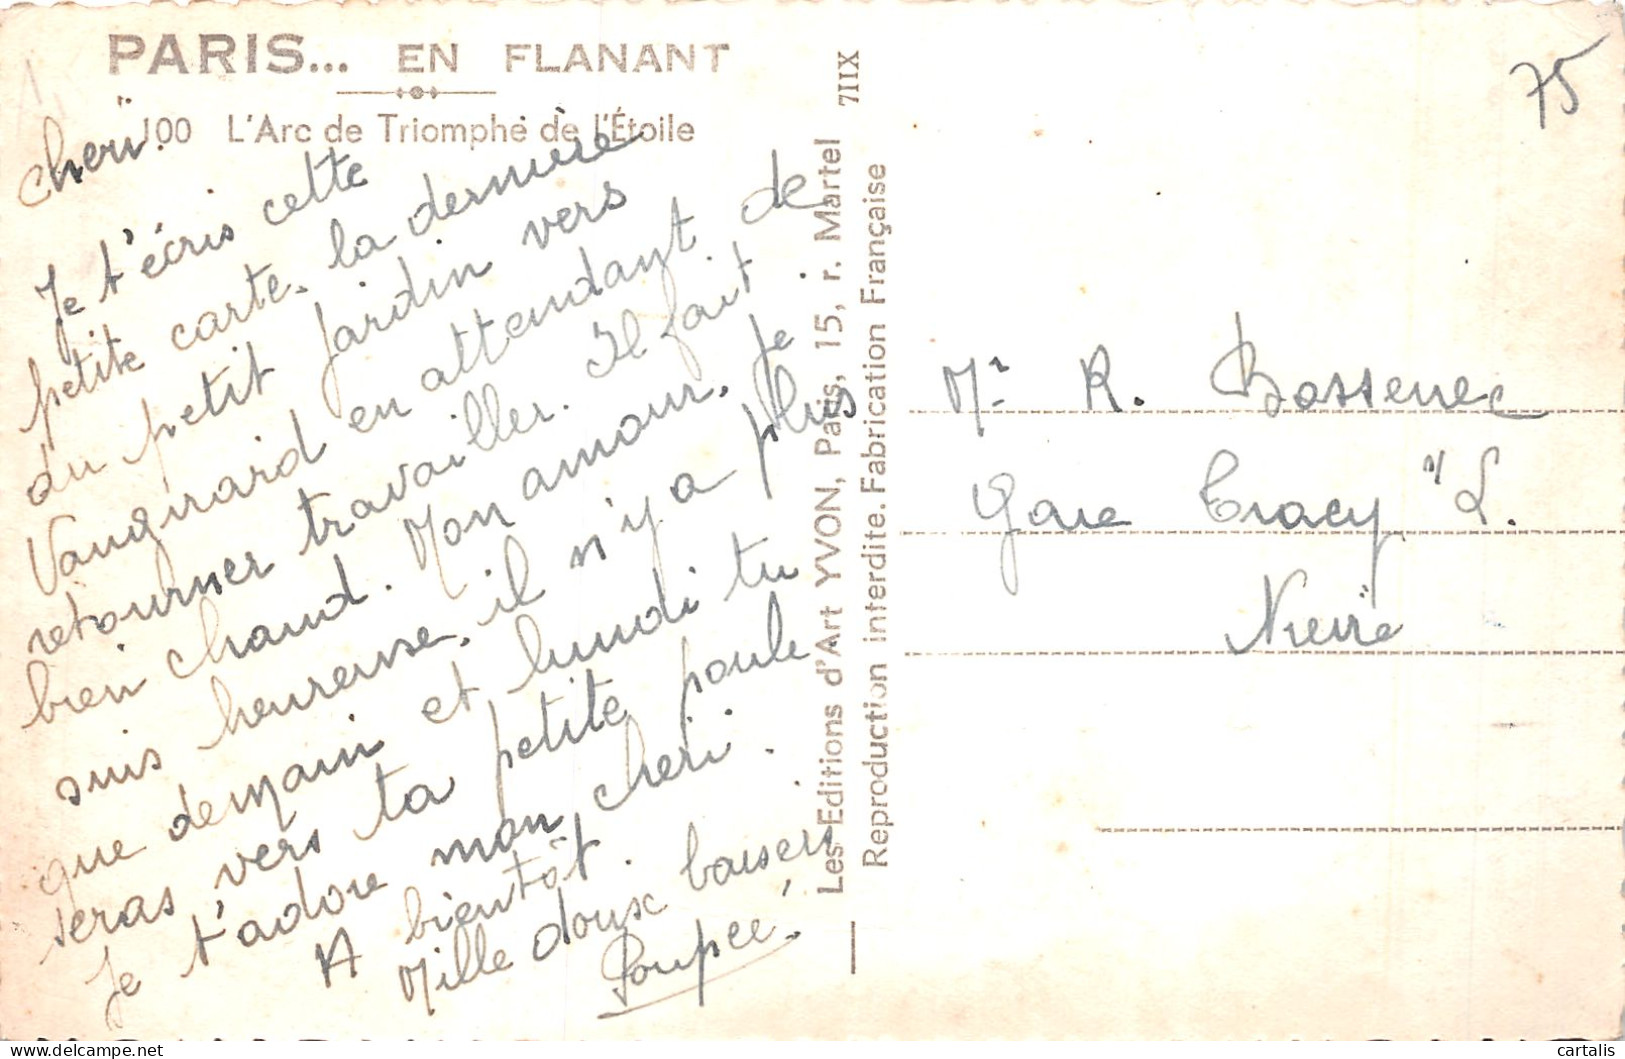 PARIS... EN FLANANT
100 L'Arc de Triomphe de l'Étoile
cheri.
Je t'écris cette
petite carte. la dernière
du petit jardin vers
Vaugirard en attendant de
retourner travailler. Il fait
bien chaud. Mon amour, je
suis heureuse, il n'y a plus
que demain et lundi tu
seras vers ta petite poule.
Je t'adore mon cheri.
A bientôt.
Mille doux baisers
Poupée.
Les Editions d'Art YVON, Paris, 15, r. Martel 7IIX
Reproduction interdite. Fabrication Française
75
Mr R. Bossenec
Gare Tracy "/ L.
Nievre
cartalis